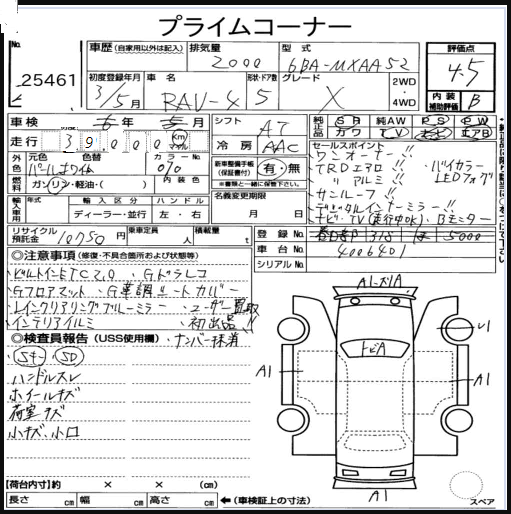 プライムコーナー
No.
25461
車歴 (自家用以外は記入)
排気量
2000
型式
6BA-MXAA52
評価点
4.5
初度登録年月
3/5月
車名
RAV-4
形状・ドア数
5
グレード
X
2WD
・
4WD
内装
補助評価
B
車検
6年 5月
シフト
AT
純正品
SR 純AW PS PW
カワ TV ナビ エアB
走行
39,000
Km
マイル
冷房
AAC
外色
元色
パールホワイト
色替
カラーNo
070
内装色
燃料
ガソリン・軽油・( )
新車整備手帳
(保証書付)
有・無
※書類と一緒に保管下さい
セールスポイント
ワンオーナー!!
TRDエアロ!!
〃 アルミ!!
サンルーフ!!
バイカラー
LEDフォグ
デジタルインナーミラー!!
ナビ・TV(走行中OK)、Bモニター
輸入車用
年式
輸入区分
ディーラー・並行
ハンドル
左・右
名義変更期限
月 日
リサイクル預託金
10750円
乗車定員
人
積載量
t
登録No.
318 5000
車台No.
4006401
シリアルNo.
◎注意事項 (修復・不具合箇所および状態)
ビルトインETC2.0 Gドラレコ
Gフロアマット、G革調シートカバー
レインクリアリングブルーミラー
ユーザー買取
インテリアイルミ
初出品!!
◎検査員報告 (USS使用欄)
ナンバー抹消
Sキ SD
ハンドルスレ
ホイールキズ
荷室キズ
小キズ、小凹
A1
トビA
A1
A1
A1
スペア
【荷台内寸】約 × × (cm)
長さ cm 幅 cm 高さ cm ←(車検証上の寸法)